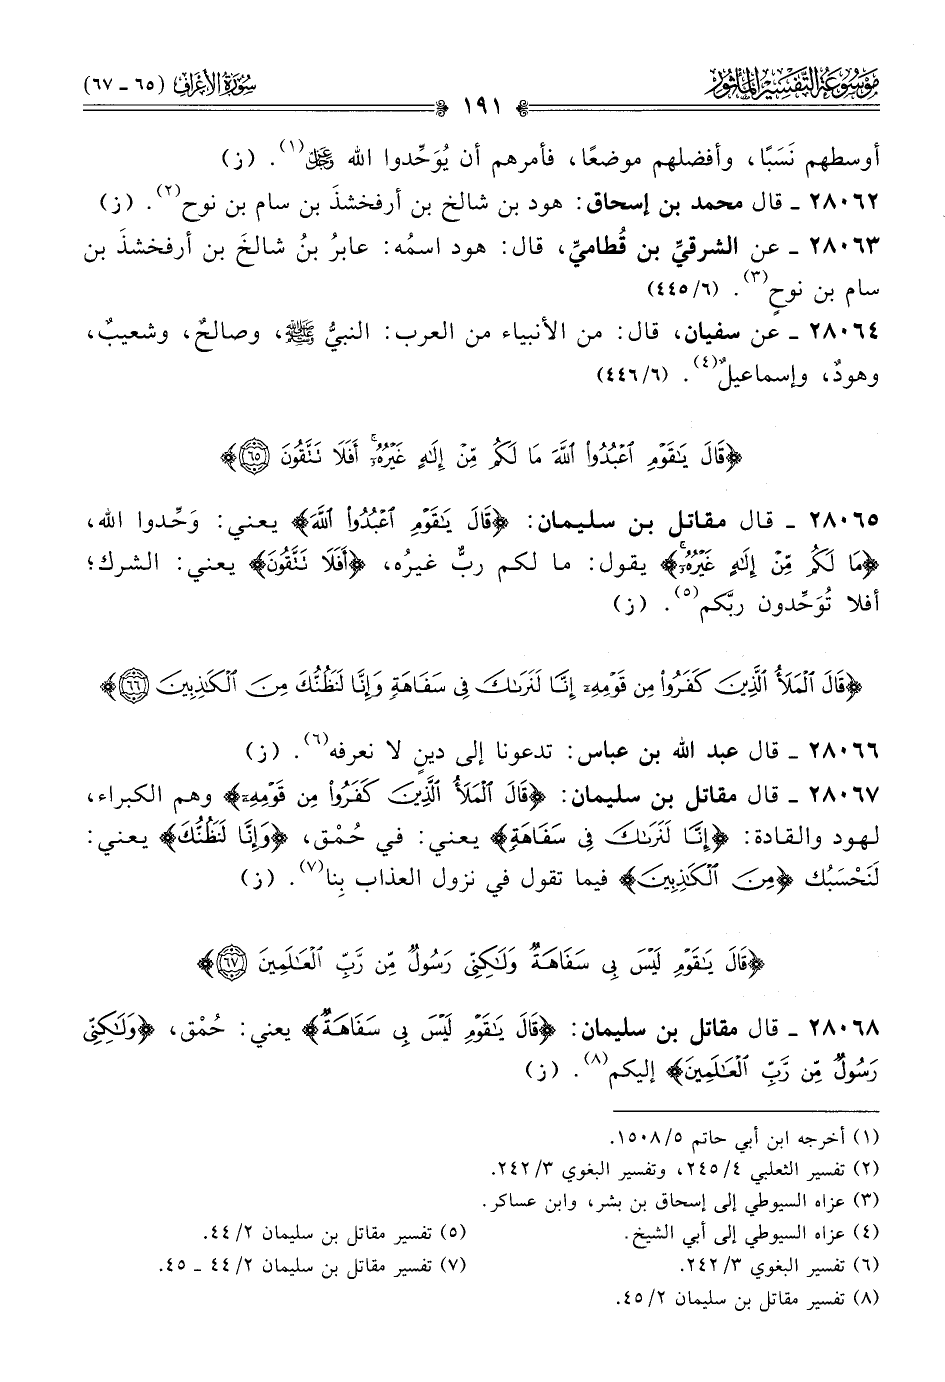 مَوْسُوعَة التَّفْسِيْر المَأْثُور
سُورَةُ الأَعْرَافِ (٦٥ ـ ٦٧)
١٩١
أوسطهم نَسَبًا، وأفضلهم موضعًا، فأمرهم أن يُوَحِّدوا الله ﷿(١). (ز)
٢٨٠٦٢ ـ قال محمد بن إسحاق: هود بن شالخ بن أرفخشذَ بن سام بن نوح(٢). (ز)
٢٨٠٦٣ ـ عن الشرقيِّ بن قُطاميِّ، قال: هود اسمُه: عابرُ بنُ شالخَ بن أرفخشذَ بن
سام بن نوحٍ(٣). (٤٤٥/٦)
٢٨٠٦٤ ـ عن سفيان، قال: من الأنبياء من العرب: النبيُّ ﷺ، وصالحٌ، وشعيبٌ،
وهودٌ، وإسماعيلُ(٤). (٤٤٦/٦)
﴿قَالَ يَٰقَوْمِ ٱعْبُدُوا۟ ٱللَّهَ مَا لَكُم مِّنْ إِلَٰهٍ غَيْرُهُۥٓ ۚ أَفَلَا تَتَّقُونَ ٦٥﴾
٢٨٠٦٥ ـ قال مقاتل بن سليمان: ﴿قَالَ يَٰقَوْمِ ٱعْبُدُوا۟ ٱللَّهَ﴾ يعني: وَحِّدوا الله،
﴿مَا لَكُم مِّنْ إِلَٰهٍ غَيْرُهُۥٓ ۚ﴾ يقول: ما لكم ربٌّ غيرُه، ﴿أَفَلَا تَتَّقُونَ﴾ يعني: الشرك؛
أفلا تُوَحِّدون ربَّكم(٥). (ز)
﴿قَالَ ٱلْمَلَأُ ٱلَّذِينَ كَفَرُوا۟ مِن قَوْمِهِۦٓ إِنَّا لَنَرَىٰكَ فِى سَفَاهَةٍ وَإِنَّا لَنَظُنُّكَ مِنَ ٱلْكَٰذِبِينَ ٦٦﴾
٢٨٠٦٦ ـ قال عبد الله بن عباس: تدعونا إلى دينٍ لا نعرفه(٦). (ز)
٢٨٠٦٧ ـ قال مقاتل بن سليمان: ﴿قَالَ ٱلْمَلَأُ ٱلَّذِينَ كَفَرُوا۟ مِن قَوْمِهِۦٓ﴾ وهم الكبراء،
لهود والقادة: ﴿إِنَّا لَنَرَىٰكَ فِى سَفَاهَةٍ﴾ يعني: في حُمْق، ﴿وَإِنَّا لَنَظُنُّكَ﴾ يعني:
لَنَحْسَبُك ﴿مِنَ ٱلْكَٰذِبِينَ﴾ فيما تقول في نزول العذاب بِنا(٧). (ز)
﴿قَالَ يَٰقَوْمِ لَيْسَ بِى سَفَاهَةٌ وَلَٰكِنِّى رَسُولٌ مِّن رَّبِّ ٱلْعَٰلَمِينَ ٦٧﴾
٢٨٠٦٨ ـ قال مقاتل بن سليمان: ﴿قَالَ يَٰقَوْمِ لَيْسَ بِى سَفَاهَةٌ﴾ يعني: حُمْق، ﴿وَلَٰكِنِّى
رَسُولٌ مِّن رَّبِّ ٱلْعَٰلَمِينَ﴾ إليكم(٨). (ز)
(١) أخرجه ابن أبي حاتم ١٥٠٨/٥.
(٢) تفسير الثعلبي ٢٤٥/٤، وتفسير البغوي ٢٤٢/٣.
(٣) عزاه السيوطي إلى إسحاق بن بشر، وابن عساكر.
(٤) عزاه السيوطي إلى أبي الشيخ.
(٥) تفسير مقاتل بن سليمان ٤٤/٢.
(٦) تفسير البغوي ٢٤٢/٣.
(٧) تفسير مقاتل بن سليمان ٤٤/٢ ـ ٤٥.
(٨) تفسير مقاتل بن سليمان ٤٥/٢.